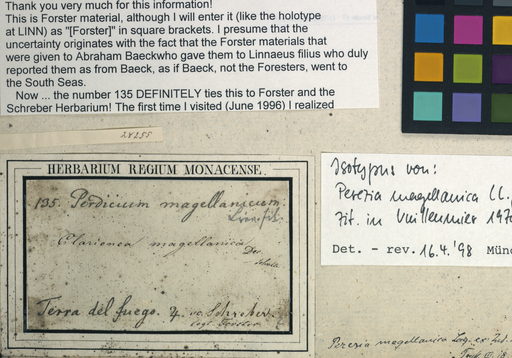 Thank you very much for this information!
This is Forster material, although I will enter it (like the holotype
at LINN) as "[Forster]" in square brackets. I presume that the
uncertainty originates with the fact that the Forster materials that
were given to Abraham Baeckwho gave them to Linnaeus filius who duly
reported them as from Baeck, as if Baeck, not the Foresters, went to
the South Seas.
Now ... the number 135 DEFINITELY ties this to Forster and the
Schreber Herbarium! The first time I visited (June 1996) I realized
24255
HERBARIUM REGIUM MONACENSE.
135. Perdicium magellanicum.
Linn. fil.
Clarionea magellanica
Terra del fuego. 4. Schreber.
legt. Forster
Isotypus von:
Perezia magellanica (L.
Zit. in Vuilleumier 1970
Det. - rev. 16.4.'98 Mün
Perezia magellanica Lag. ex